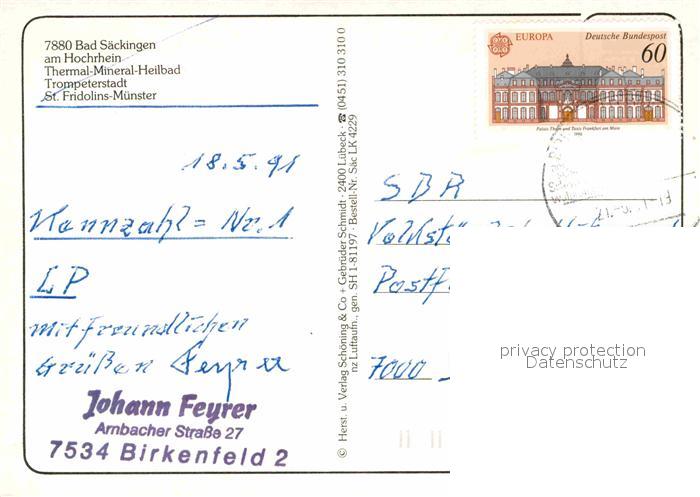 7880 Bad Säckingen
am Hochrhein
Thermal-Mineral-Heilbad
Trompeterstadt
St. Fridolins-Münster
18.5.91
Kannzahl = Nr. 1
LP
mit freundlichen
Grüßen Feyrer
Johann Feyrer
Arnbacher Straße 27
7534 Birkenfeld 2
© Herst. u. Verlag Schöning & Co + Gebrüder Schmidt · 2400 Lübeck · ☎ (0451) 310 310 0
nz Luftaufn., gen. SH 1-81197 · Bestell-Nr. Säc LK 4229
EUROPA Deutsche Bundespost
60
Palais Thurn und Taxis Frankfurt am Main
1990
SDR
Postf
7000
privacy protection
Datenschutz